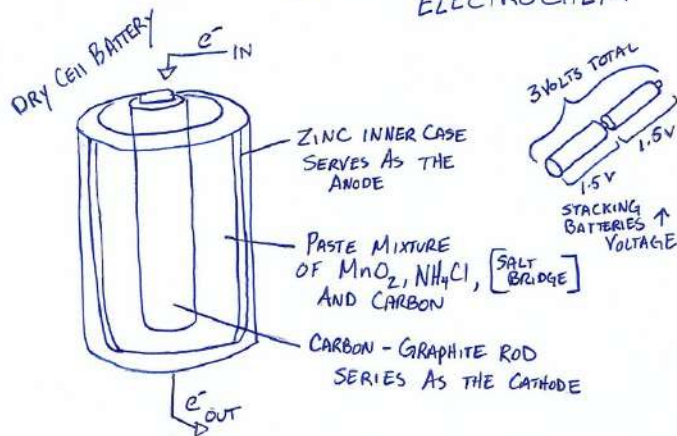 DRY CELL BATTERY
e-
IN
ZINC INNER CASE
SERVES AS THE
ANODE
PASTE MIXTURE
OF MnO₂, NH₄Cl, [SALT BRIDGE]
AND CARBON
CARBON - GRAPHITE ROD
SERIES AS THE CATHODE
e-
OUT
3 VOLTS TOTAL
1.5V
1.5V
STACKING
BATTERIES ↑
VOLTAGE